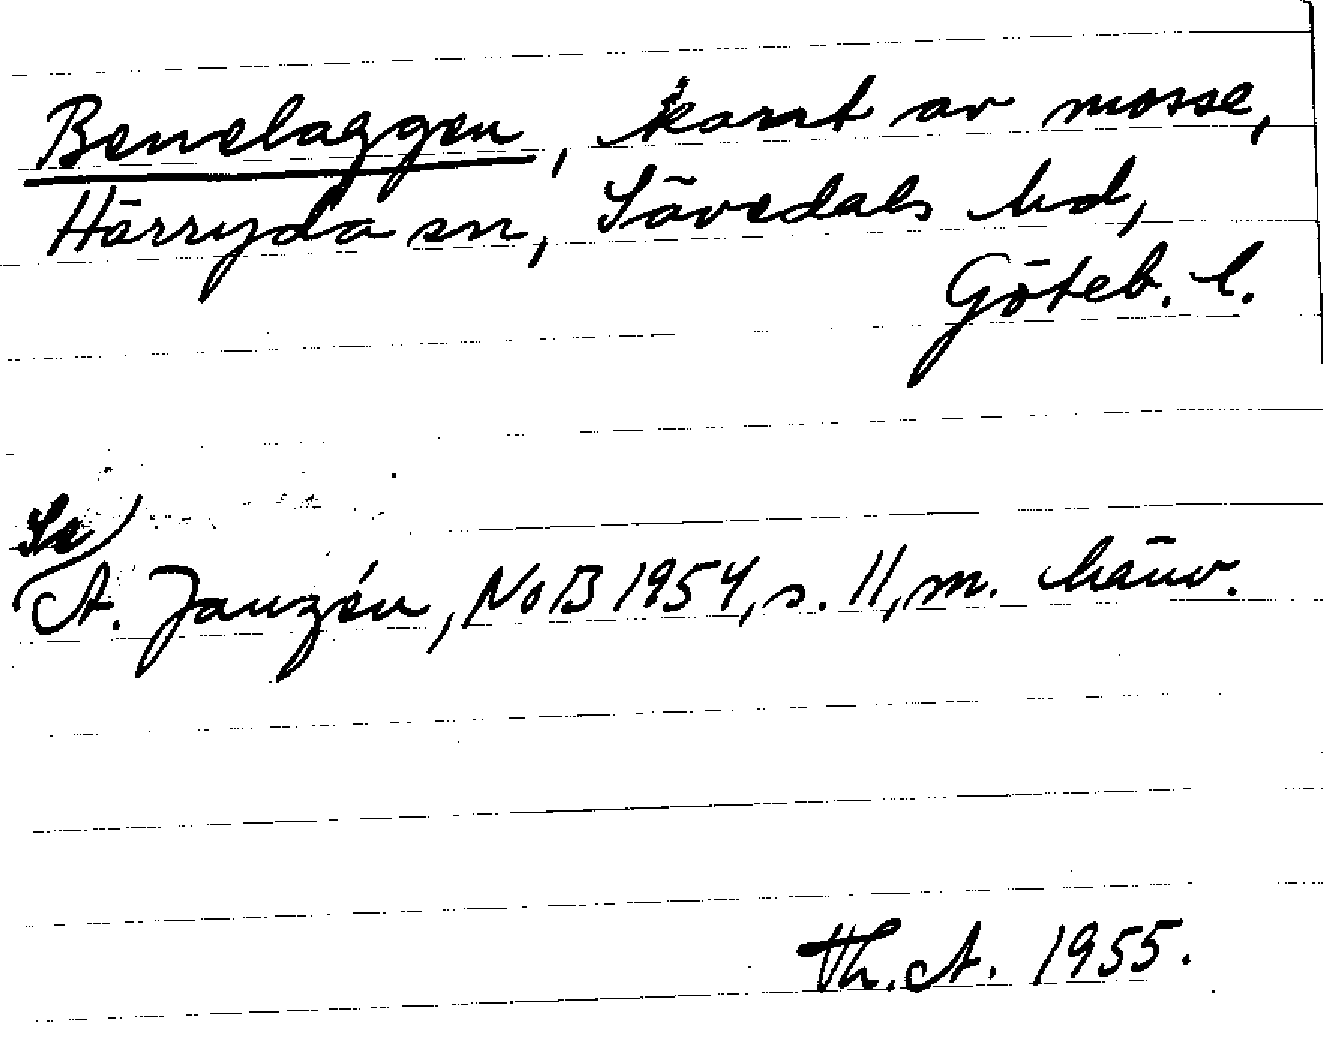 Benelaggen, kant av mosse,
Härryda sn, Sävedals hd,
Göteb. l.
Se
A. Janzén, NoB 1954, s. 11, m. hänv.
Th. A. 1955.